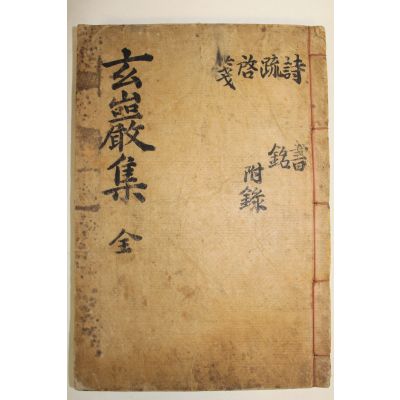 玄巖集 全
詩疏啓箋
書銘附錄